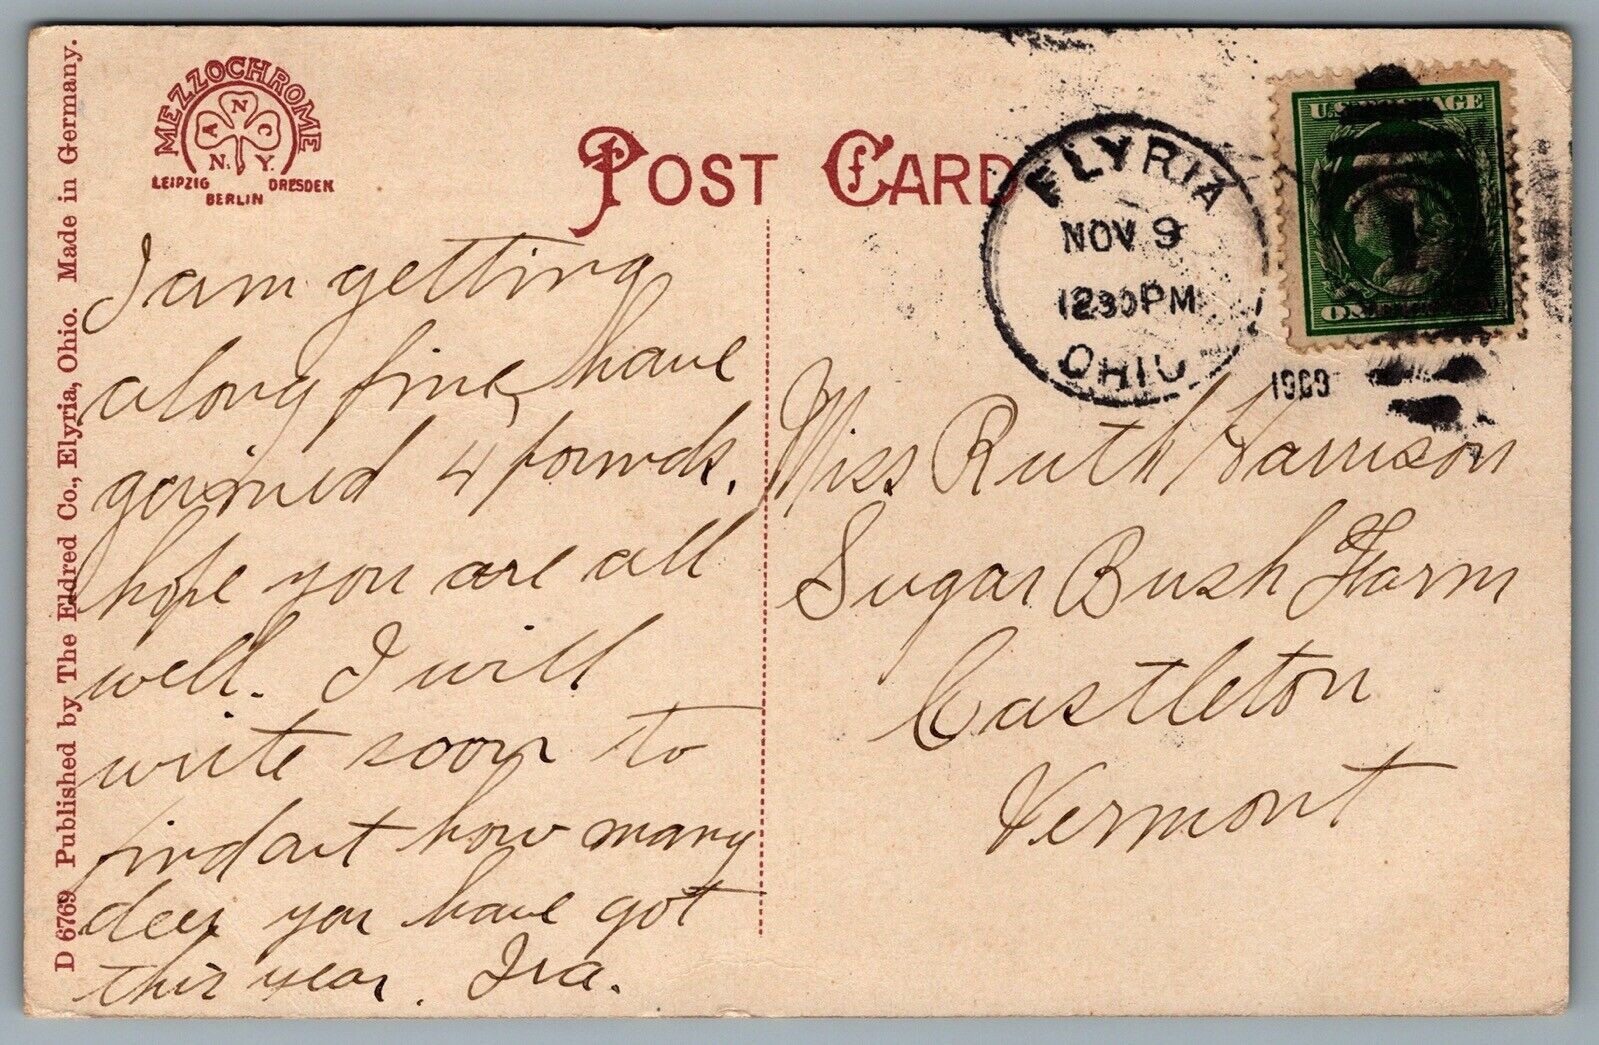 MEZZOCHROME
A N C
N. Y.
LEIPZIG DRESDEN
BERLIN
POST CARD
ELYRIA
NOV 9
1230 PM
OHIO
1909
U.S. POSTAGE
D 6769 Published by The Eldred Co., Elyria, Ohio. Made in Germany.
I am getting
along fine, have
gained 4 pounds.
hope you are all
well. I will
write soon to
find out how many
deer you have got
this year. Ira.
Miss Ruth Harrison
Sugar Bush Farm
Castleton
Vermont